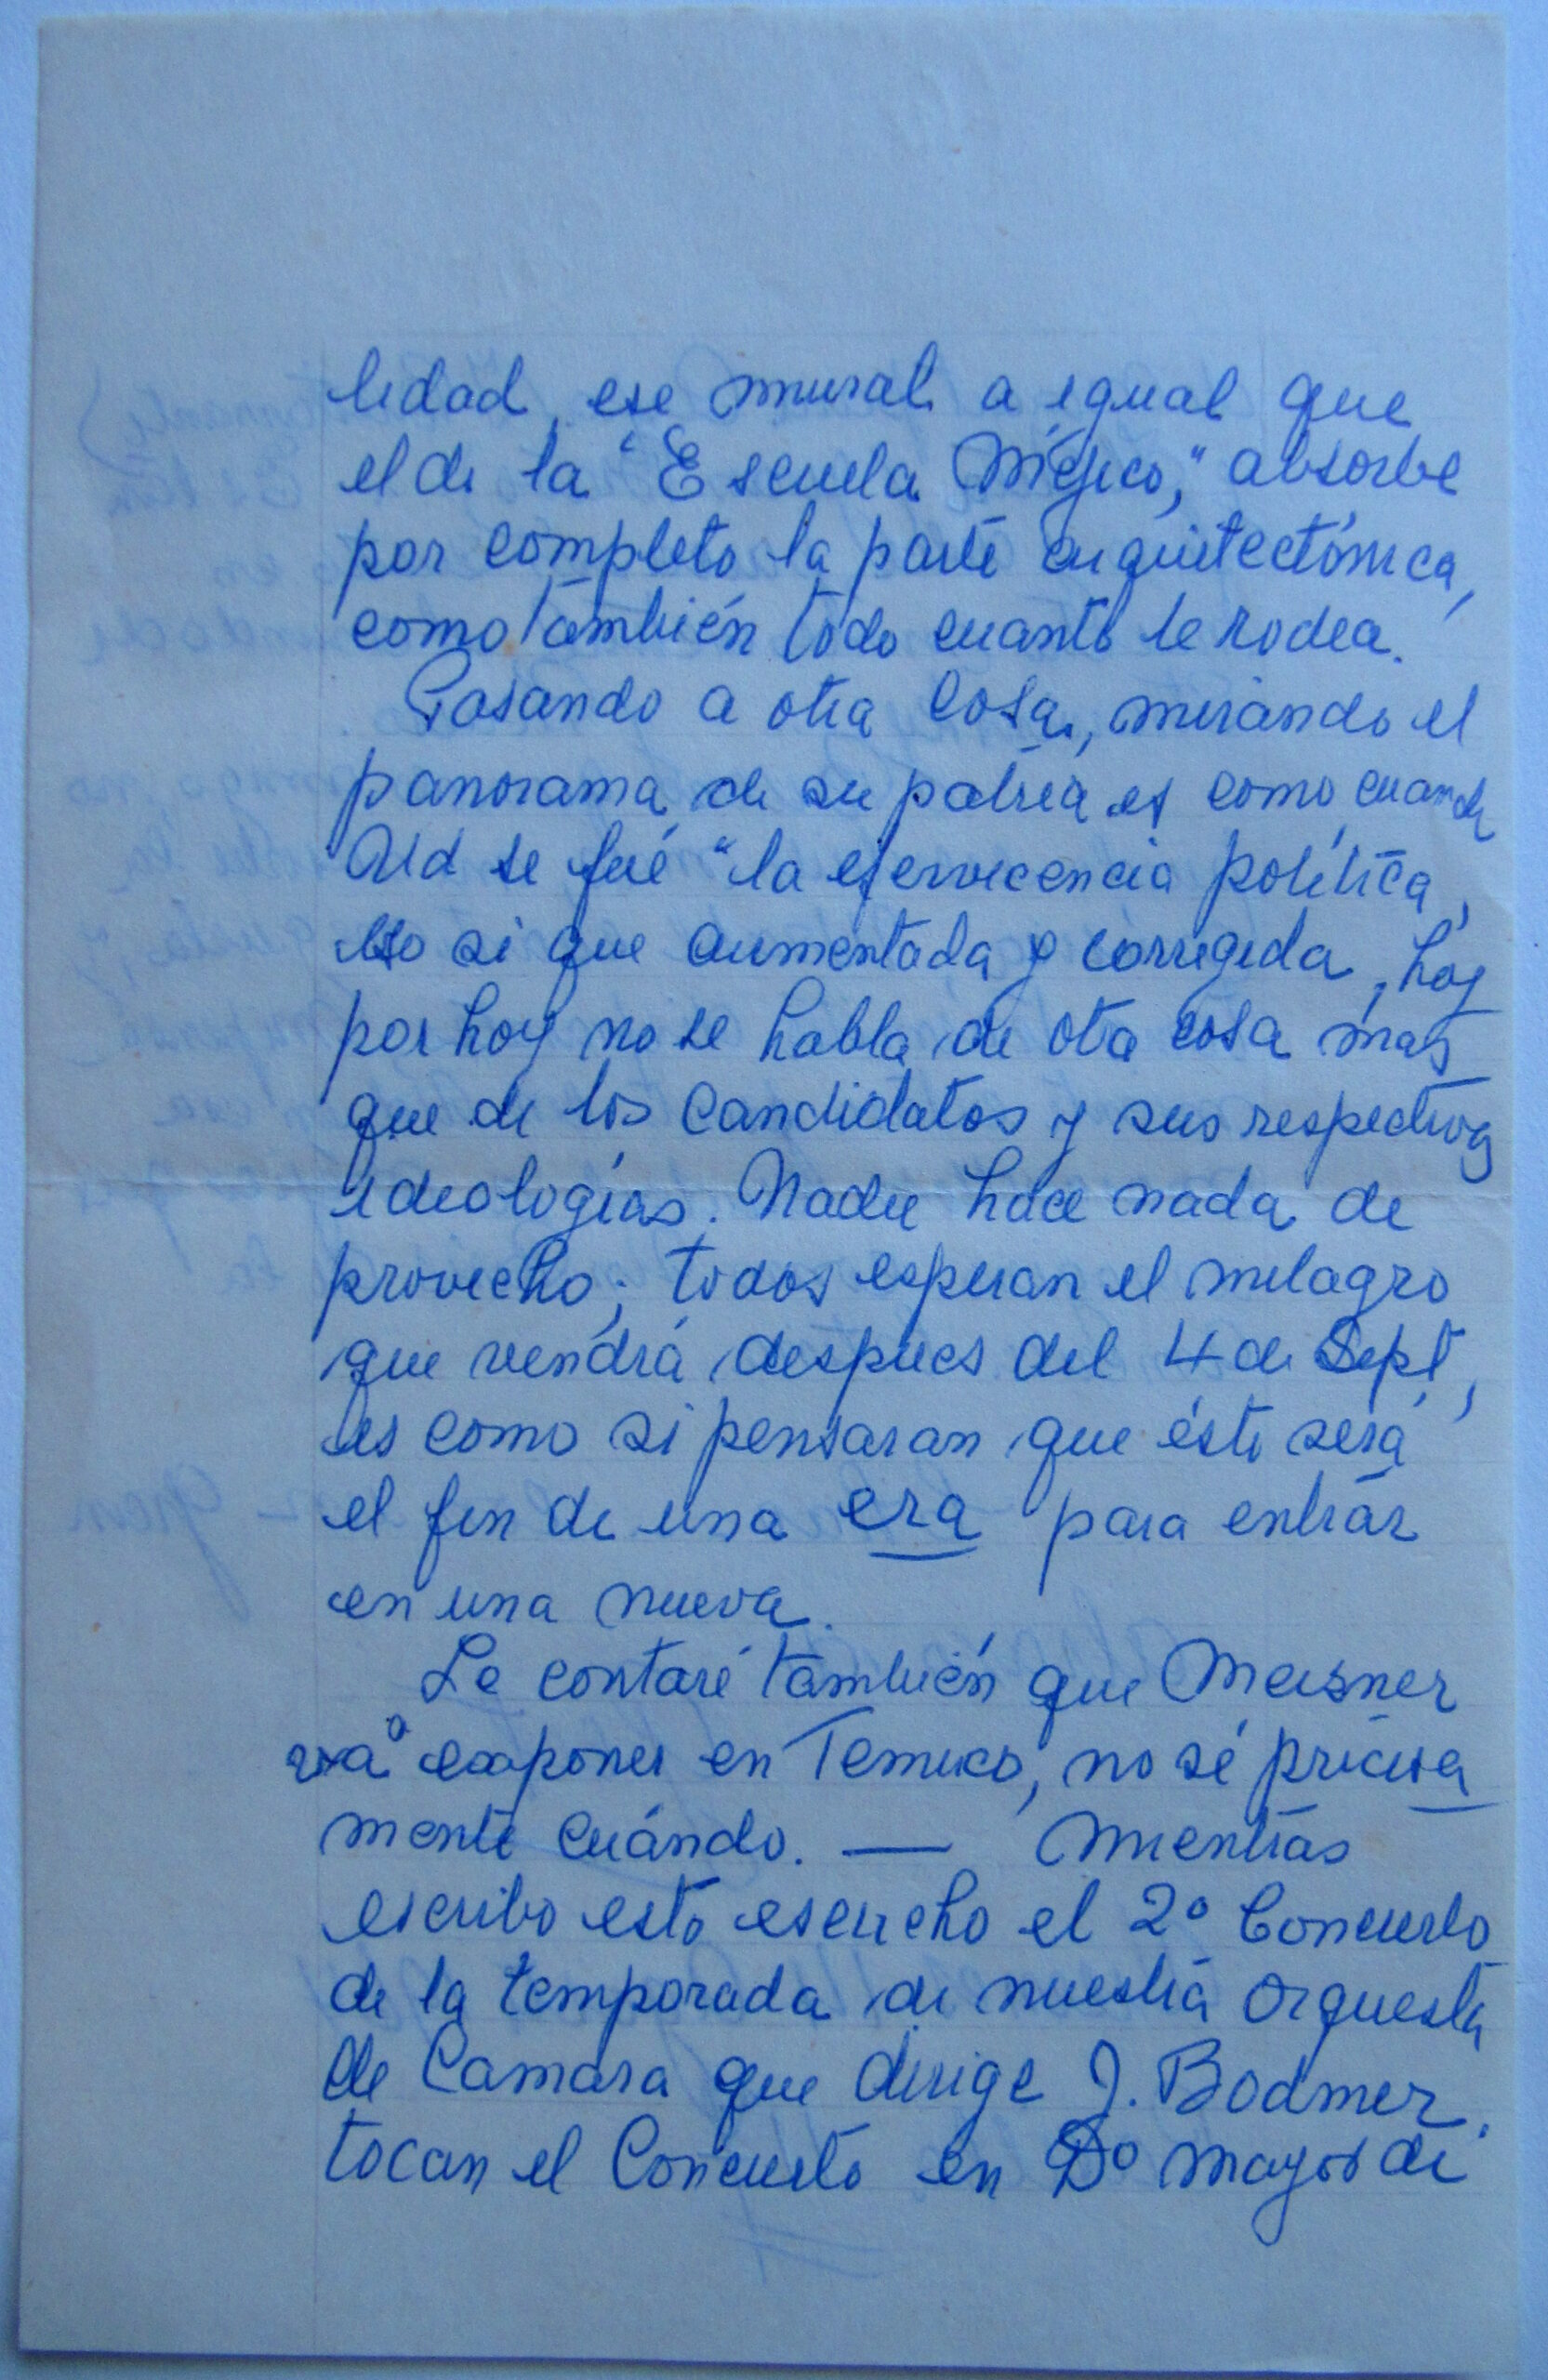 lidad, ese mural a igual que
el de la "Escuela Méjico," absorbe
por completo la parte arquitectónica,
como también todo cuanto le rodea.
Pasando a otra cosa, mirando el
panorama de su patria es como cuando
Ud se fué "la efervecencia política,
eso si que aumentada y corregida, hoy
por hoy no se habla de otra cosa mas
que de los candidatos y sus respectivas
ideologías. Nadie hace nada de
provecho; todos esperan el milagro
que vendrá despues del 4 de Sept,
es como si pensaran que ésto será
el fin de una era para entrar
en una nueva.
Le contaré también que Meisner
va a exponer en Temuco, no sé precisa
mente cuándo. — Mientras
escribo esto escucho el 2º Concierto
de la temporada de nuestra Orquesta
de Camara que dirige J. Bodmer,
tocan el Concierto en Dº mayor de